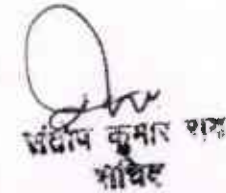 संदीप कुमार
सचिव